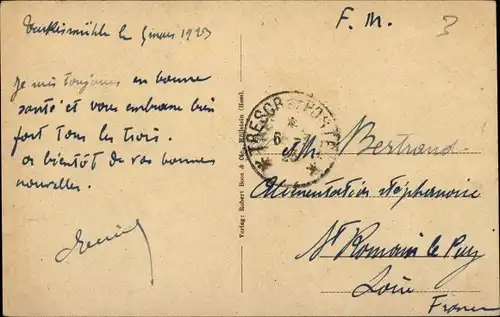 Turkismühle le 5 mars 1923
F. M.
3
Je suis toujours en bonne
santé et vous embrasse bien
fort tous les trois.
a bientôt de vos bonnes
nouvelles.
Verlag: Robert Boos & Oberstein (Hess).
TRESOR ET POSTES
6 - 3
Mr Bertrand
Alimentation Stéphanoise
St Romain le Puy
Loire
France